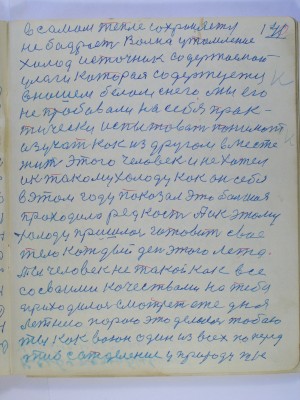 в самом тепле сохраняется
не бодрает Волна утомление
холод источник содержаемой
влаги которая содержует
в нашем белом снеге мы его
не пробовали на себя прак-
тически испытоват понимат
изукат как из другом вместе
жит этого человек и не хотел
и к такому холоду как он себя
в этом году показал это большая
приходила редкость Так этому
холоду пришлос готовить свае
тело каждый ден этого лета.
Ты человек не такой как все
со своими качествами на тебя
приходилос смотрет еже дная
летнею парою это делал тобаю
ты как воин один из всех
сатделение у природу